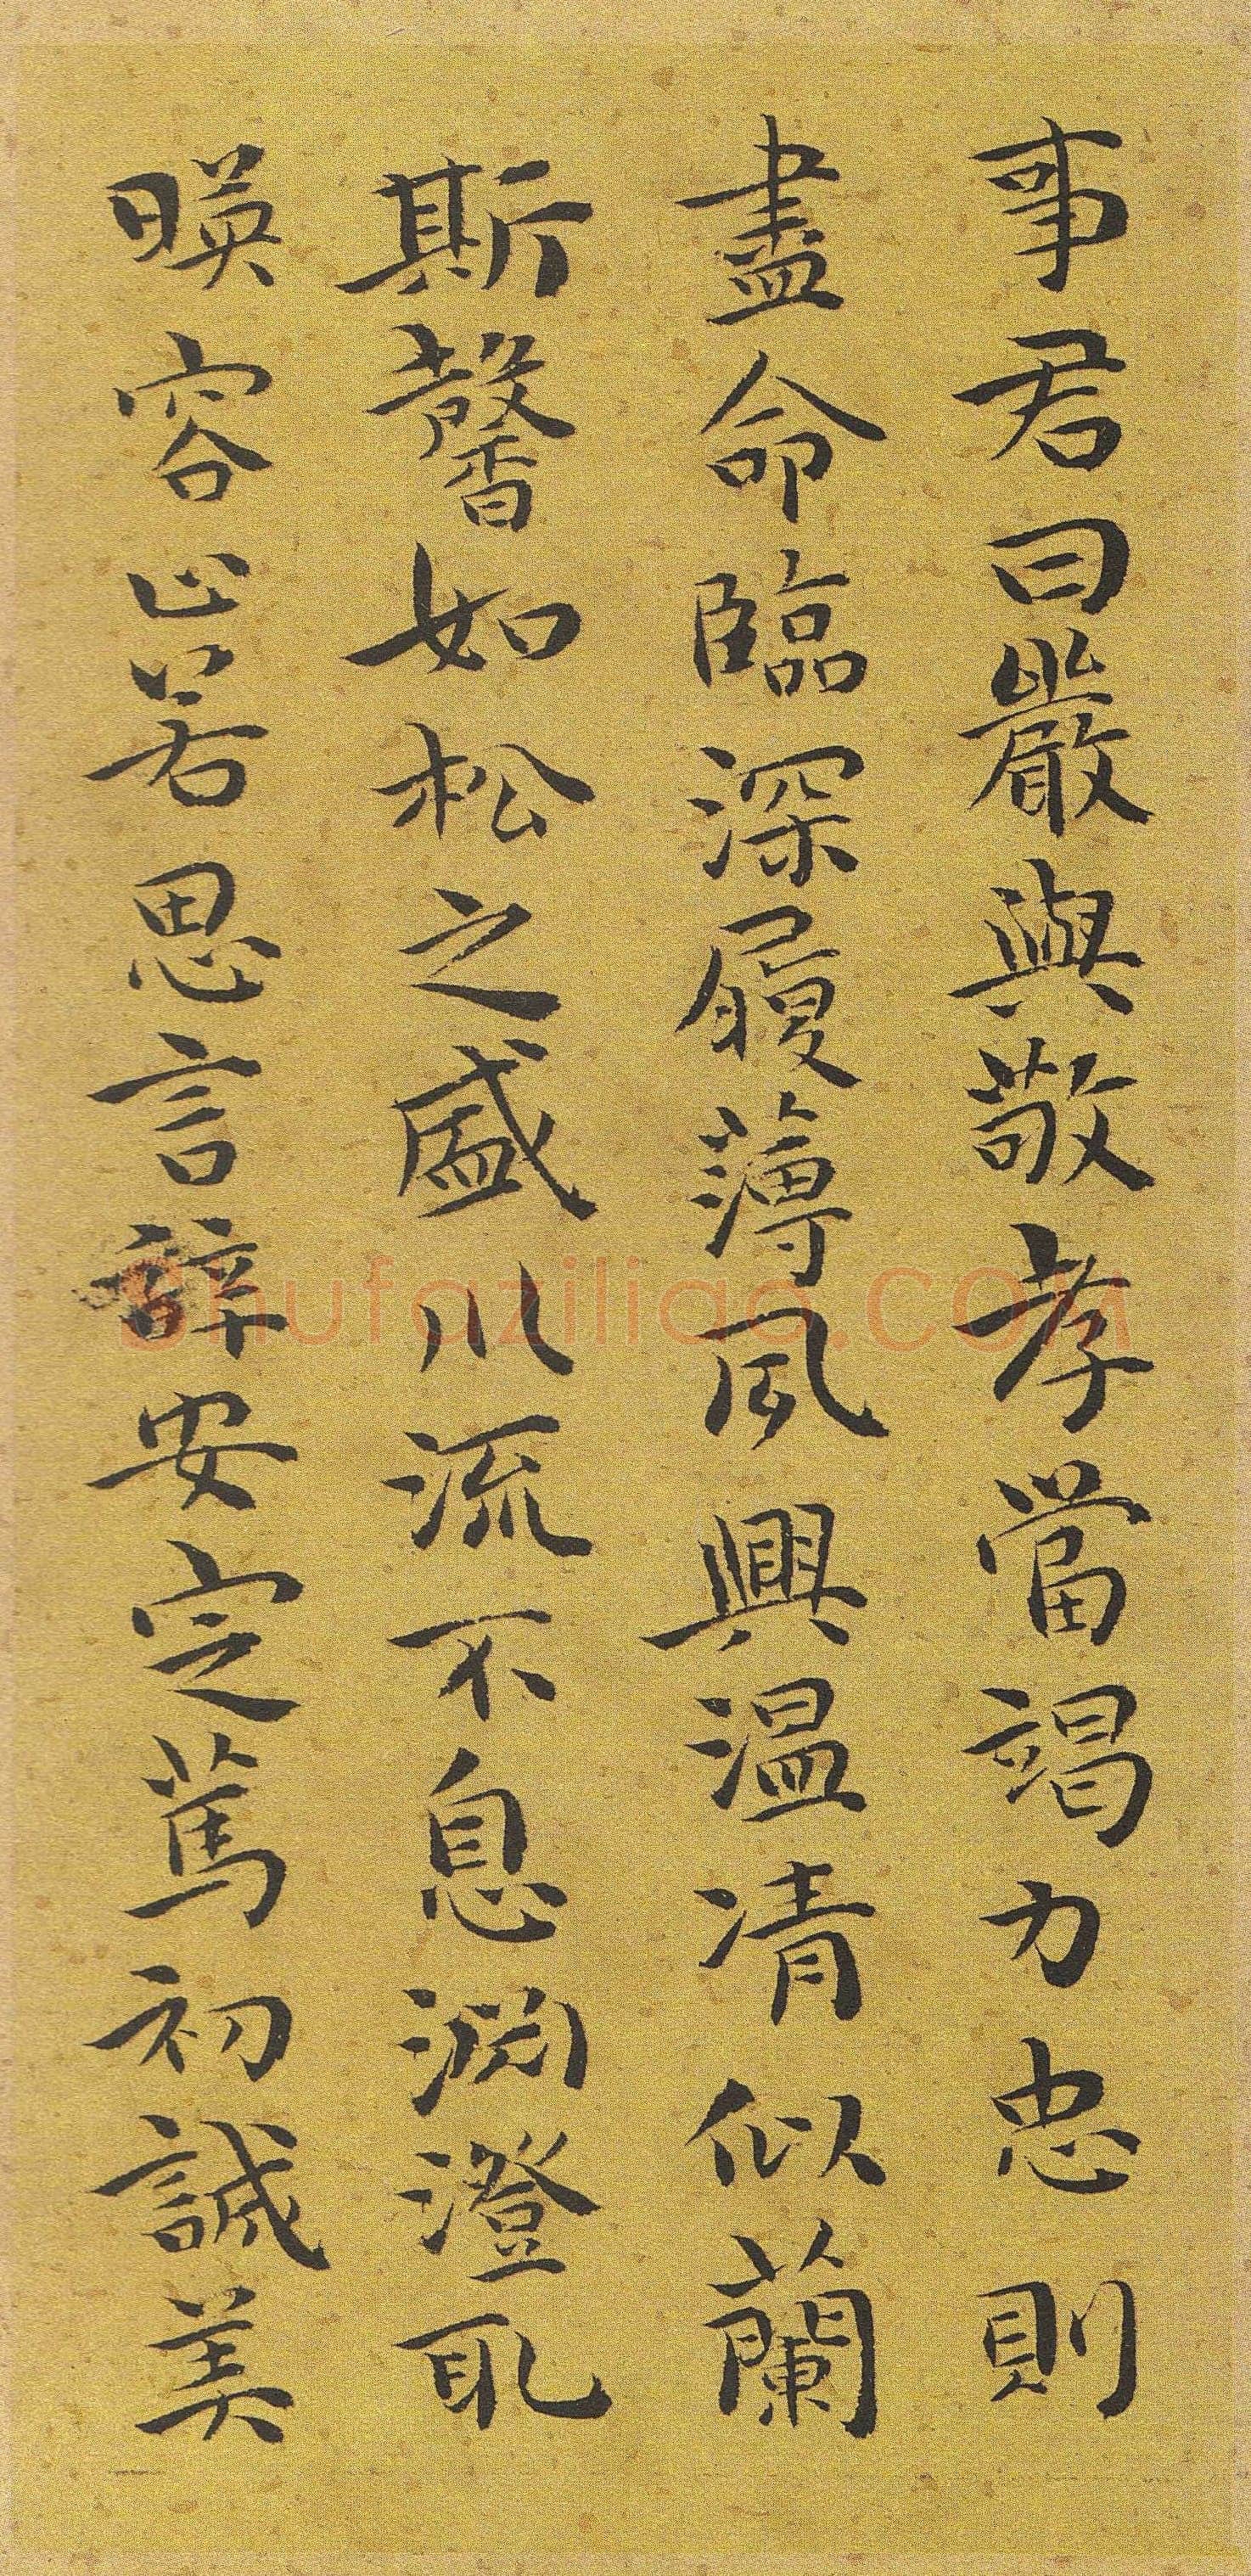 事君曰嚴與敬孝當竭力忠則
盡命臨深履薄夙興温凊似蘭
斯馨如松之盛川流不息淵澄取
暎容止若思言辭安定篤初誠美
Shufaziliao.COM